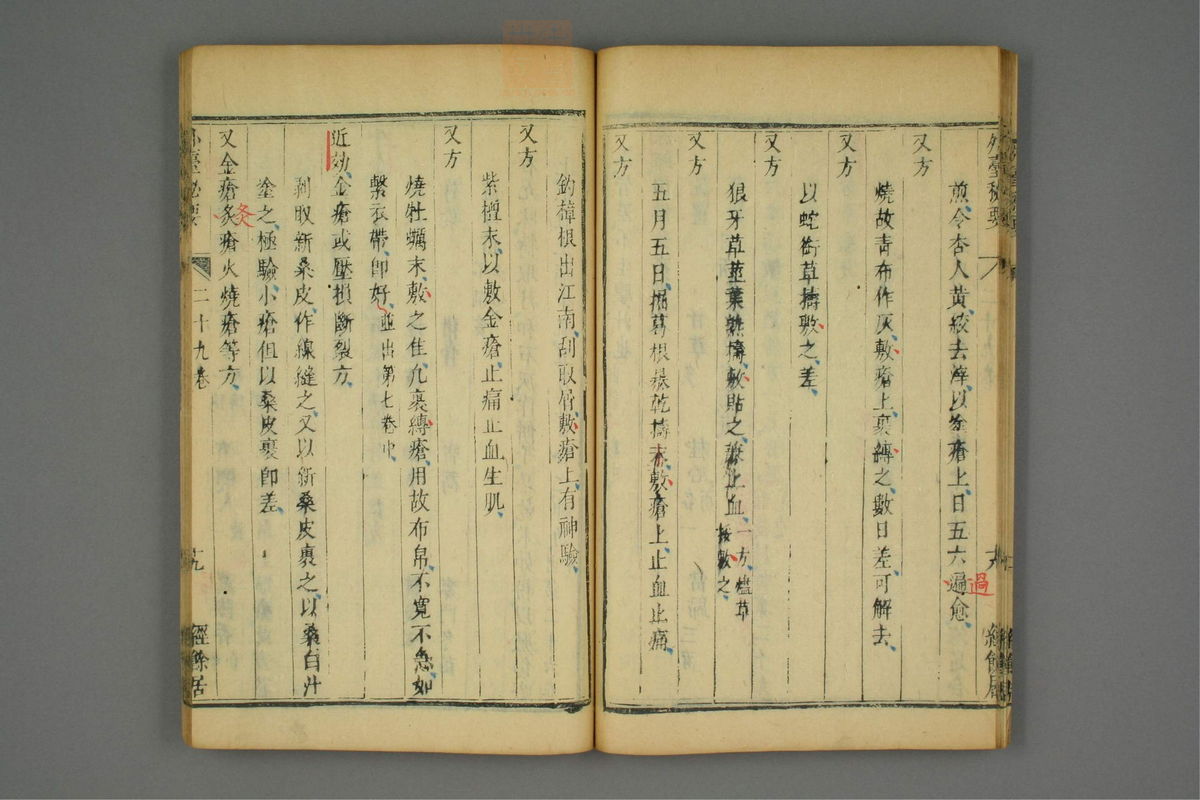 外臺祕要
煎令杏人黃絞去滓以塗瘡上日五六遍愈
過
又方
燒故青布作灰敷瘡上裹縛之數日差可解去
又方
以蛇銜草擣敷之差
又方
狼牙草莖葉熟擣敷貼之兼止血一方燼草
挼敷之
又方
五月五日掘葛根暴乾擣末敷瘡上止血止痛
又方
釣樟根出江南刮取屑敷瘡上有神驗
又方
紫檀末以敷金瘡止痛止血生肌
又方
燒牡蠣末敷之佳凡裹縛瘡用故布帛不寬不急如
繫衣帶卽好並出第七卷中
近効金瘡或壓損斷裂方
剥取新桑皮作線縫之又以新桑皮裹之以桑白汁
塗之極驗小瘡但以桑皮裹卽差
又金瘡炙瘡火燒瘡等方
灸
外臺祕要
二十九卷
十九
經餘居